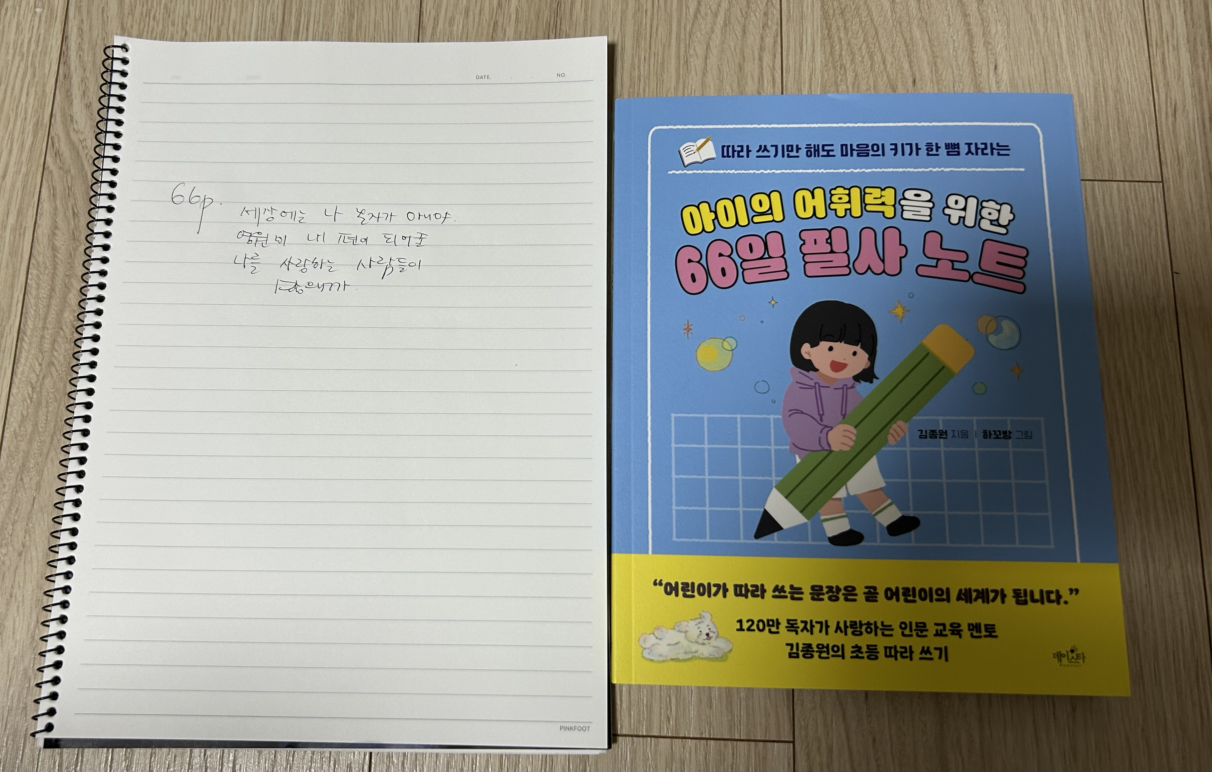 DATE.
NO.
66p.
세상에는 나 혼자가 아니야.
영원히 내 편이 되어줄
나를 사랑하는 사람들이
많으니까
PINKFOOT
따라 쓰기만 해도 마음의 키가 한 뼘 자라는
아이의 어휘력을 위한
66일 필사 노트
김종원 지음 | 하꼬방 그림
“어린이가 따라 쓰는 문장은 곧 어린이의 세계가 됩니다.”
120만 독자가 사랑하는 인문 교육 멘토
김종원의 초등 따라 쓰기
데이스타